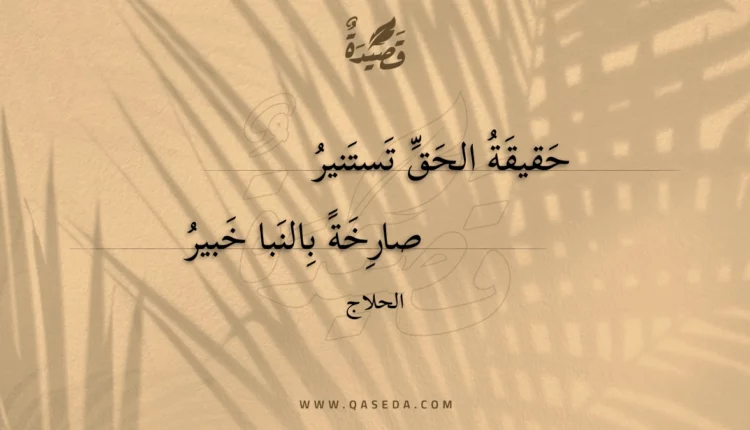 قَصِيْدَةٌ
حَقيقَةُ الحَقِّ تَستَنيرُ
صارِخَةً بِالنَبا خَبيرُ
الحلاج
WWW.QASEDA.COM